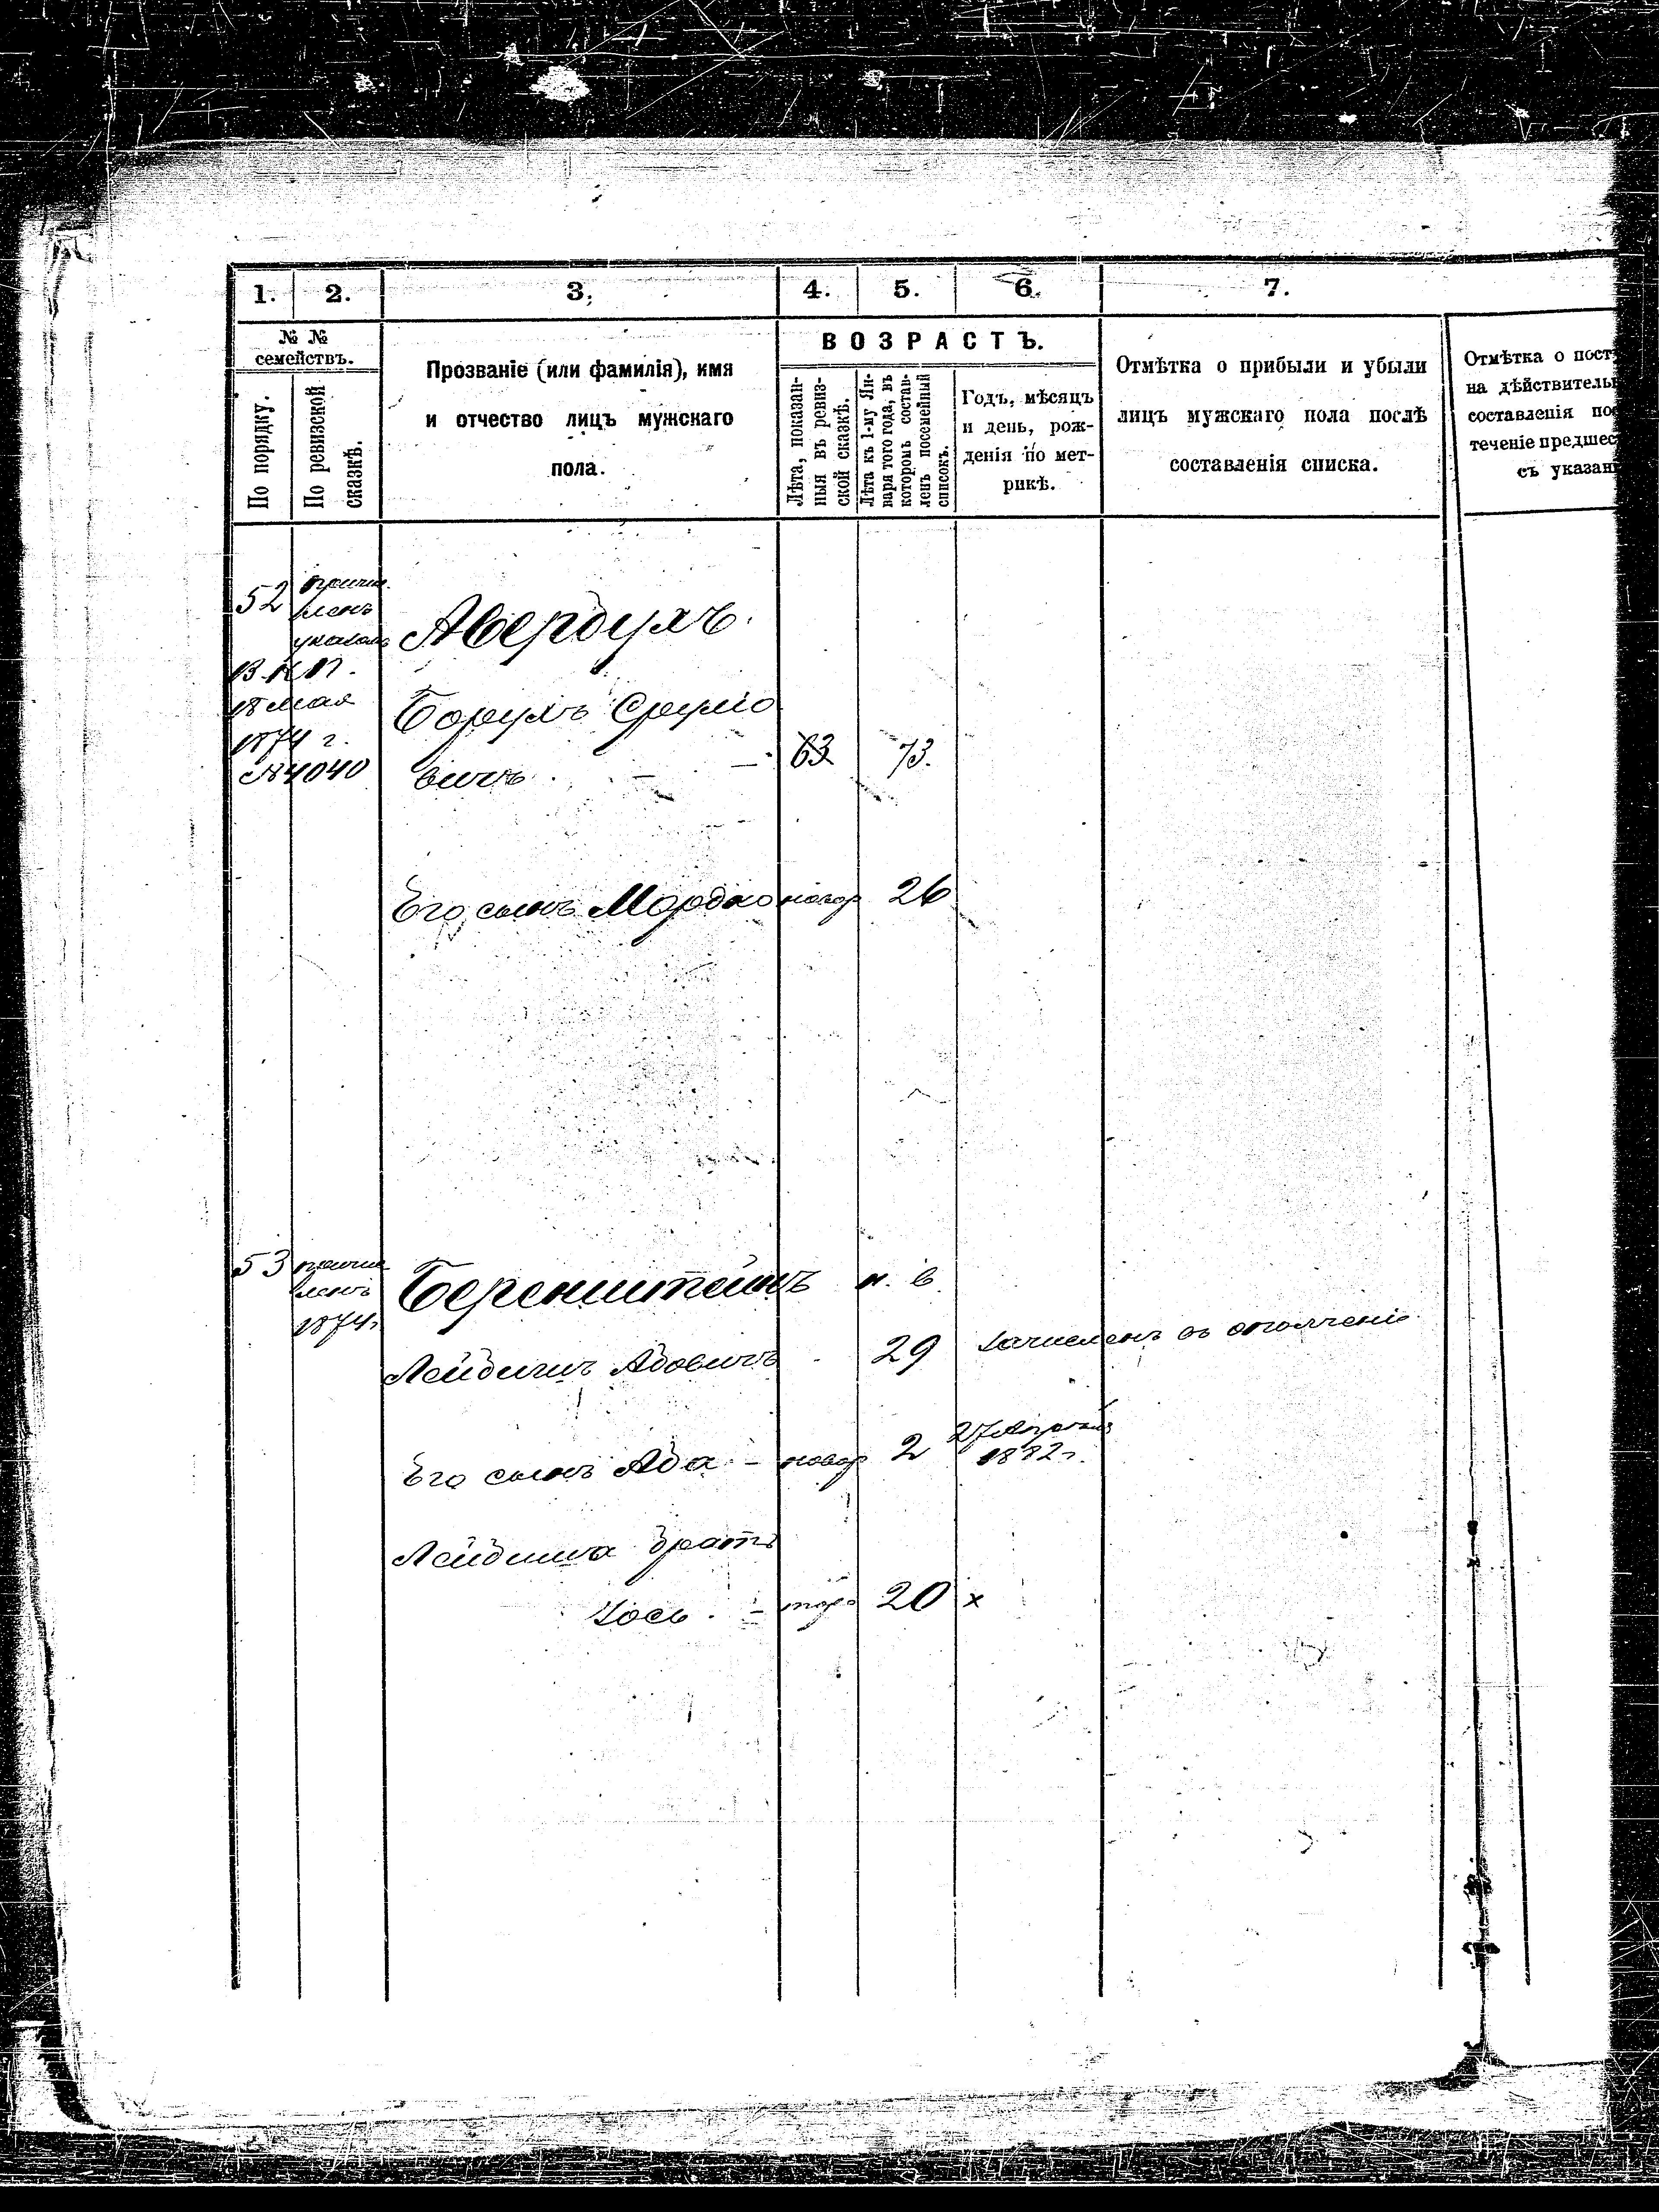 1. 2. 3. 4. 5. 6. 7.
№ №
семействъ.
По порядку.
По ревизской
сказкѣ.
Прозваніе (или фамилія), имя
и отчество лицъ мужскаго
пола.
ВОЗРАСТЪ.
Лѣта, показан-
ныя въ ревиз-
ской сказкѣ.
Лѣта къ 1-му Ян-
варя того года, въ
которомъ состав-
ленъ посемейный
списокъ.
Годъ, мѣсяцъ
и день, рож-
денія по мет-
рикѣ.
Отмѣтка о прибыли и убыли
лицъ мужскаго пола послѣ
составленія списка.
Отмѣтка о пост
на дѣйствитель
составленія по
теченіе предшес
съ указан
52 причис.
ленъ
указомъ
В. К. П.
18 мая
1874 г.
№ 4040
Авербухъ.
Борухъ Срулио
вичъ 63 73.
Его сынъ Мордко новор 26
53 причис
ленъ
1874г
Беренштейнъ н. в.
Лейбишъ Абовичъ 29 зачисленъ въ ополченіе
Его сынъ Аба - новор 2 27 Апрѣля
1882 г.
Лейбиша братъ
Іось. - 20 х